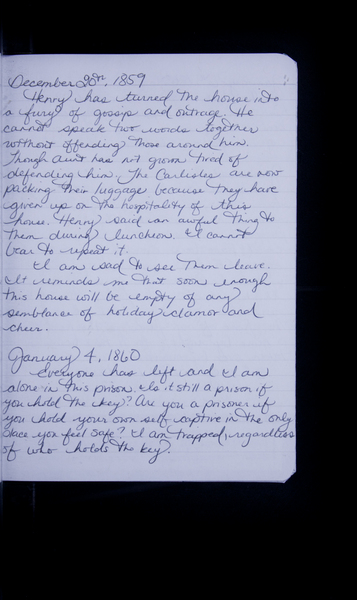 December 20th, 1859
Henry has turned the house into
a fury of gossip and outrage. He
cannot speak two words together
without offending those around him.
Though Aunt has not grown tired of
defending him. The Carlisles are now
packing their luggage because they have
given up on the hospitality of this
house. Henry said an awful thing to
them during luncheon. I cannot
bear to repeat it.
I am sad to see them leave.
It reminds me that soon enough
this house will be empty of any
semblance of holiday clamor and
cheer.
January 4, 1860
Everyone has left and I am
alone in this prison. Is it still a prison if
you hold the key? Are you a prisoner if
you hold your own self captive in the only
place you feel safe? I am trapped, regardless
of who holds the key.